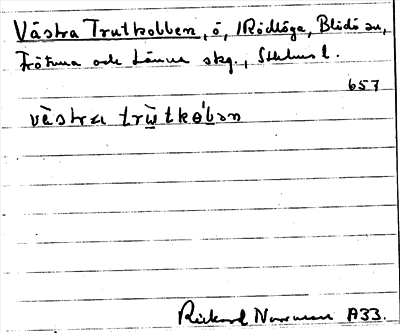 Västra Trutkobben, ö, Rödlöga, Blidö sn,
Frötuna och Länna skg., Sthlms l.
657
västra trùtkob́ən
Rickard Norman A33.